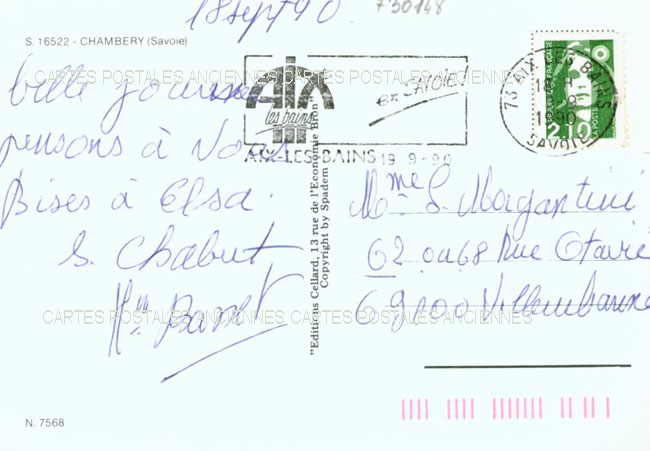 18 sept 90
730148
S. 16522 - CHAMBERY (Savoie)
belle journée
pensons à vous
Bises à Elsa.
S. Chabut
AIX
les bains
en SAVOIE
AIX-LES-BAINS 19 9-90
73 AIX LES BAINS
19 9
1990
SAVOIE
2,10
LA POSTE
Mme S. Magantini
62 Rue
69100 Villeurbanne
"Editions Cellard, 13 rue de l'Economie Bron"
Copyright by Spadem
CARTES POSTALES ANCIENNES CARTES POSTALES ANCIENNES
CARTES POSTALES ANCIENNES CARTES POSTALES ANCIENNES
N. 7568